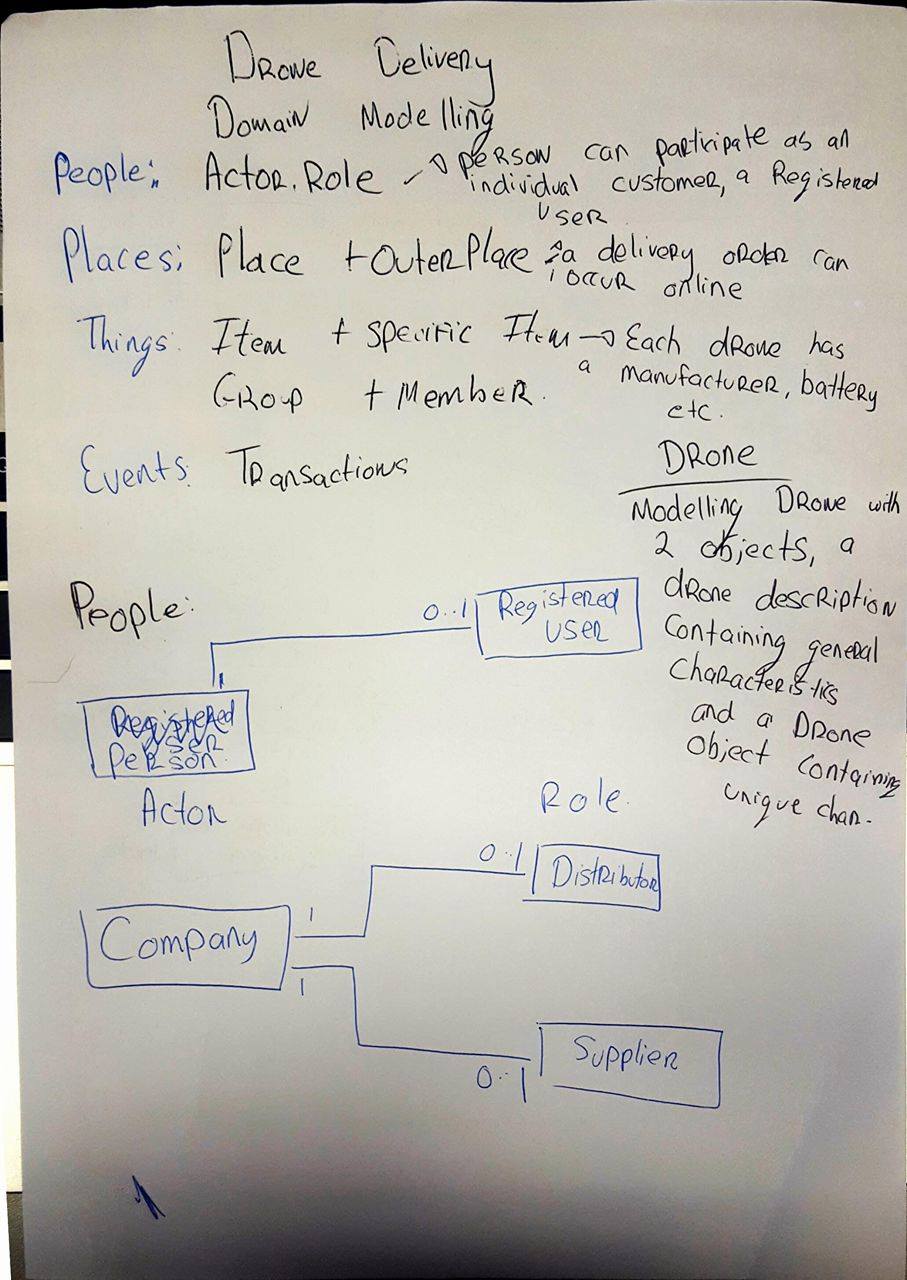 Drone Delivery
Domain Modelling
People: Actor. Role → person can participate as an
individual customer, a Registered
User
Places: Place + OuterPlace : a delivery order can
occur online
Things: Item + Specific Item → Each drone has
a manufacturer, battery
Group + Member.
etc.
Events: Transactions
DRone
Modelling Drone with
2 objects, a
drone description
Containing general
Characteristics
and a Drone
Object Containing
unique char.
People:
0..1
Registered
User
1
Registered
User
Person.
Actor
Role.
0..1
Distributor
Company
1
1
0..1
Supplier
1